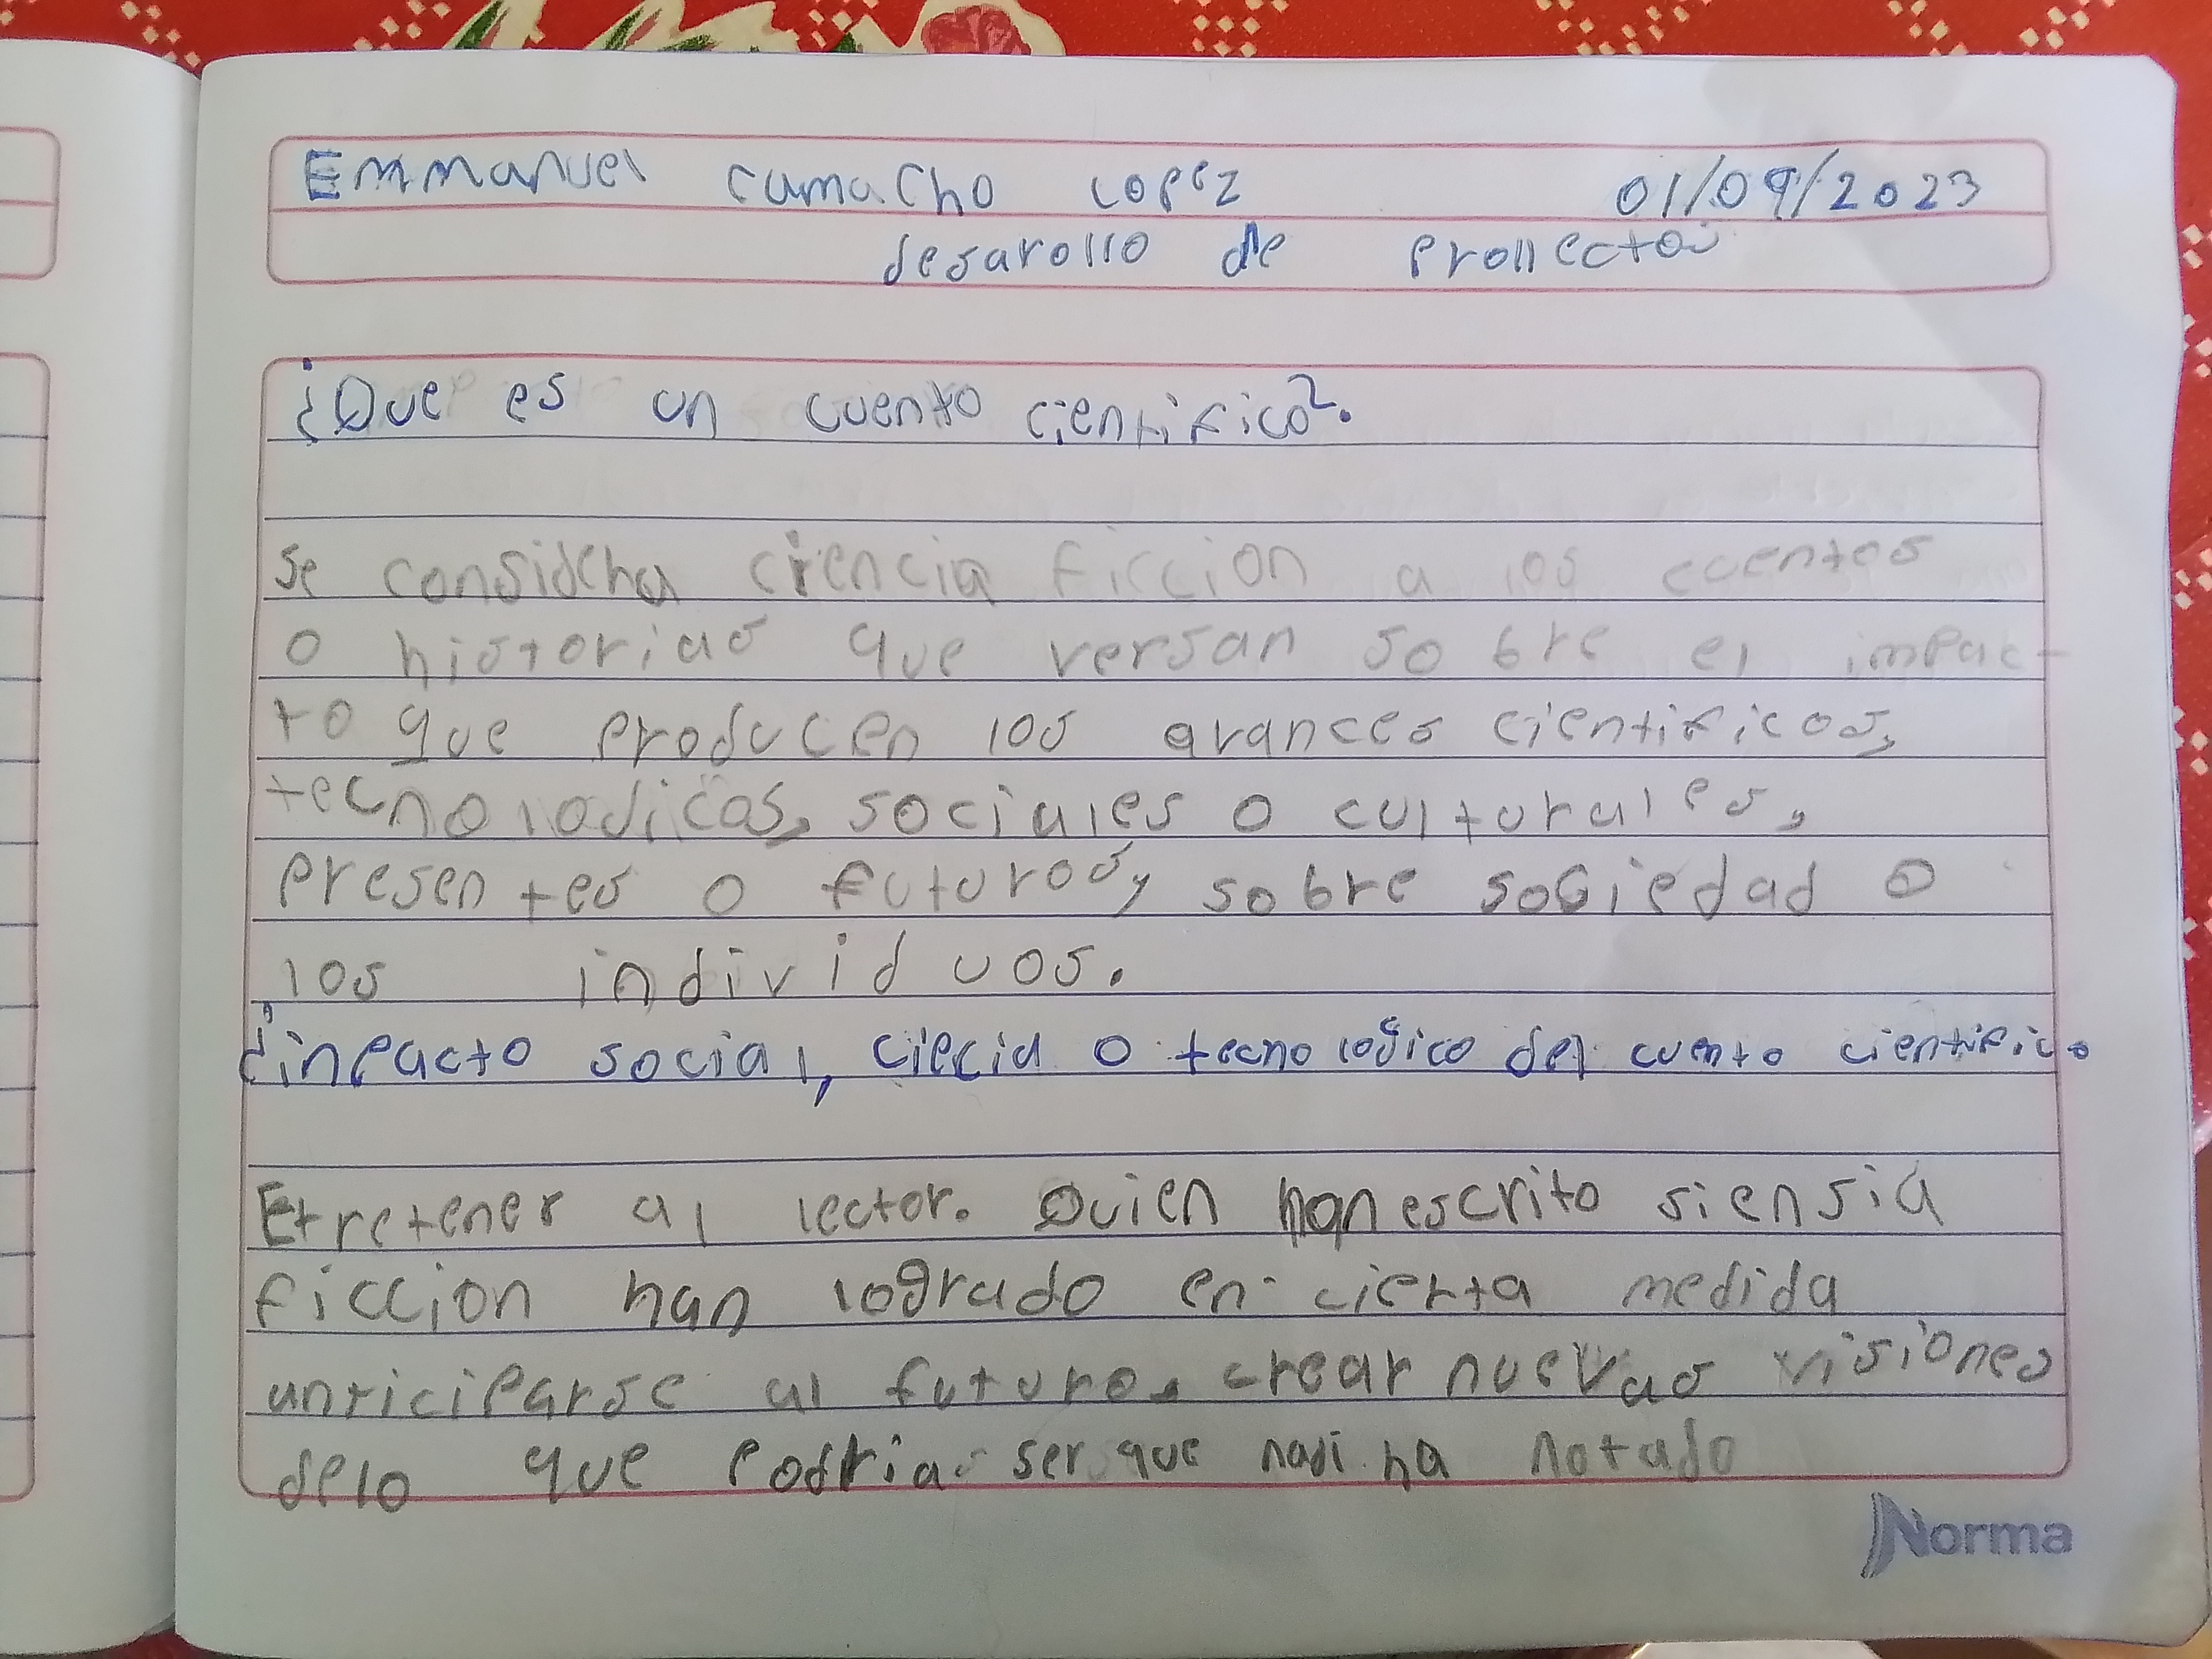 Emmanuel camacho Lopez 01/09/2023
desarollo de prollectos
¿Que es un cuento cientifico?.
se considera ciencia ficcion a los cuentos
o historias que versan so bre el impac-
to que producen los avances cientificos,
tecnolodicos, sociales o culturales,
presen tes o futuros, sobre sociedad o
los individ uos.
¿inpacto social, ciecia o tecnologico del cuento cientifico
Etretener al lector. Quien han escrito siensia
ficcion han logrado en cierta medida
anticiparse al futuro. crear nuevas visiones
delo que podria ser que nadi ha notado
Norma